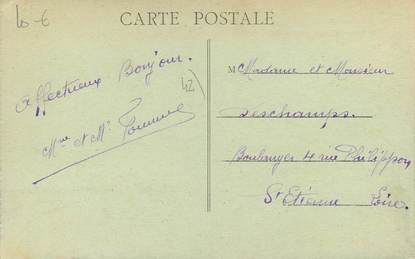 10 €
CARTE POSTALE
Affectueux Bonjour.
Mme et Mr
42
M Madame et Monsieur
Deschamps.
Boulanger 4 rue Philippon
St Etienne Loire.